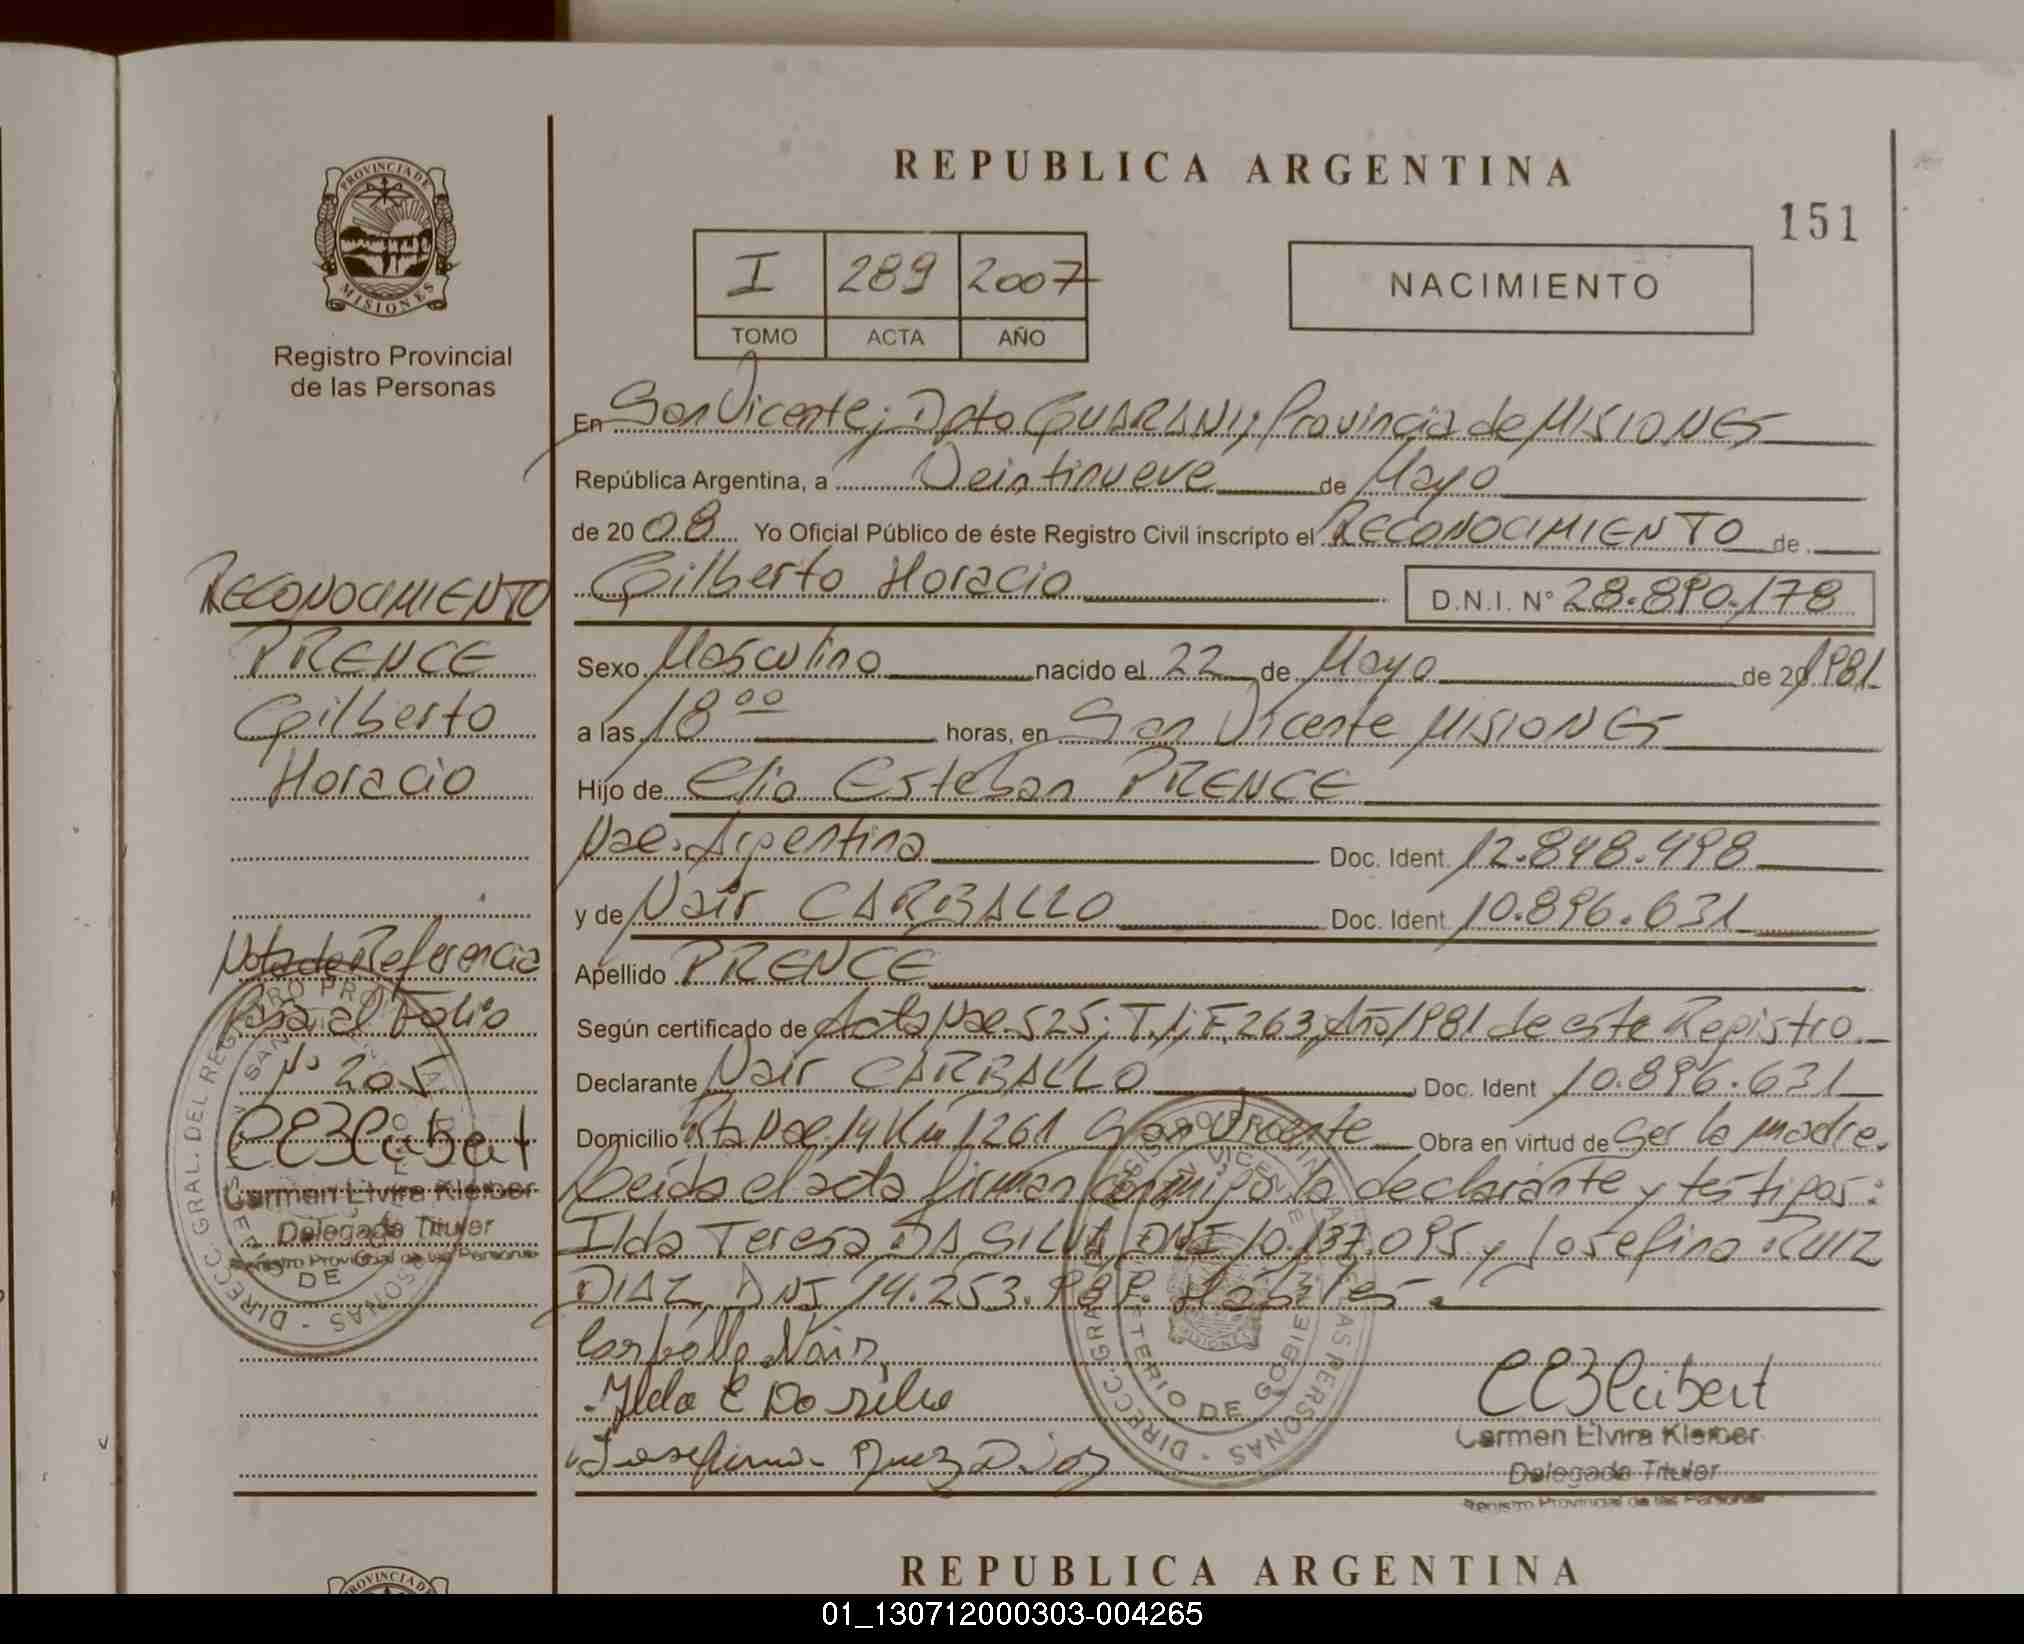 REPUBLICA ARGENTINA
151
PROVINCIA DE MISIONES
Registro Provincial
de las Personas
I 289 2007
TOMO ACTA AÑO
NACIMIENTO
En San Vicente; Dpto GUARANI; Provincia de MISIONES
República Argentina, a Veintinueve de Mayo
de 2008 Yo Oficial Público de éste Registro Civil inscripto el RECONOCIMIENTO de
Gilberto Horacio D.N.I. N° 28.890.178
Sexo Masculino nacido el 22 de Mayo de 20 1981
a las 18 00 horas, en San Vicente MISIONES
Hijo de Elio Esteban PRENCE
Nac. Argentina Doc. Ident. 12.848.498
y de Nair CARBALLO Doc. Ident. 10.896.631
Apellido PRENCE
Según certificado de Acta Nac. 525; T.I; F.263; Año 1981 de este Registro
Declarante Nair CARBALLO Doc. Ident 10.896.631
Domicilio Rta Nac. 14 Km 1261 San Vicente Obra en virtud de Ser la madre.
Leída el acta firman conmigo la declarante y testigos:
Ilda Teresa DA SILVA DNI 10.137.095 y Josefina RUIZ
DIAZ DNI 14.253.989. Hábiles.
Carballo Nair
Ilda Da Silva
Josefina Ruiz Diaz
Carmen Elvira Kleiber
Delegada Titular
Registro Provincial de las Personas
RECONOCIMIENTO
PRENCE
Gilberto
Horacio
Nota de Referencia
Pasa al Folio
N° 205
Carmen Elvira Kleiber
Delegada Titular
Registro Provincial de las Personas
REPUBLICA ARGENTINA
01_130712000303-004265